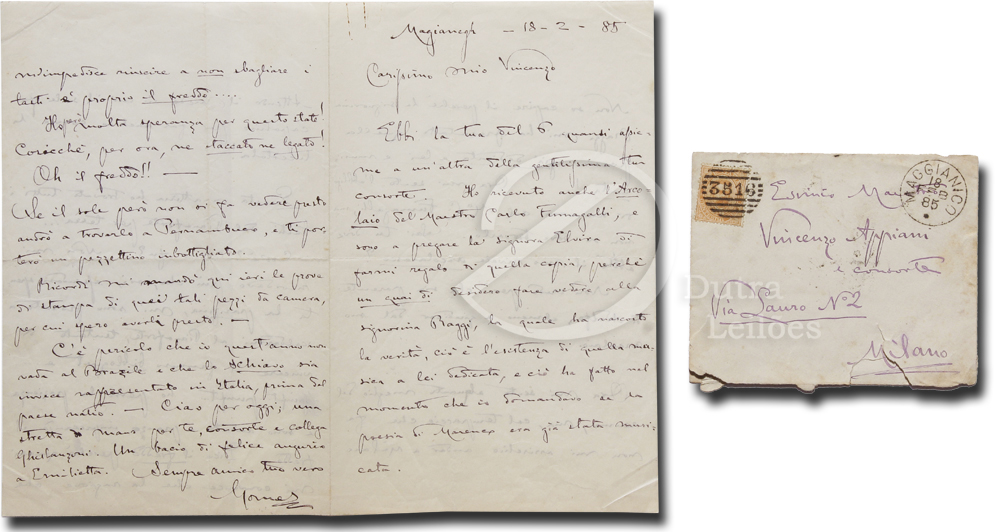 Magianegh - 18-2-85
Carissimo mio Vincenzo
Ebbi la tua del 6 quasi assie-
me a un'altra della gentilissima tua
consorte. Ho ricevuto anche l'Arco-
laio del Maestro Carlo Fumagalli, e
sono a pregare la signora Elvira di
farmi regalo di quella copia, perchè
un quai dì desidero fare vedere alla
signorina Raggi, la quale ha nascosto
la verità, cioè l'esistenza di quella mu-
sica a lei dedicata, e ciò ha fatto nel
momento che io domandavo se la
poesia di Marenco era già stata musi-
cata.
riuscire a non sbagliare i
tasti è proprio il freddo....
Ho molta speranza per quest'estate!
Cosicchè, per ora, ne staccato ne legato!
Oh il freddo!! —
Se il sole però non si fa vedere presto
andrò a trovarlo a Pernambuco, e ti por-
terò un pezzettino imbottigliato.
Ricordi mi mandò qui ieri le prove
di stampa di quei tali pezzi da camera,
per cui spero averli presto. —
C'è pericolo che io quest'anno non
vada al Brazile e che lo Schiavo sia
invece rappresentato in Italia, prima del
paese natio. — Ciao per oggi; una
stretta di mano per te, consorte e collega
Ghislanzoni. Un bacio di felice augurio
a Ermilietta. Sempre amico tuo vero
Gomes
3516
MAGGIANICO
18
85
Vincenzo Appiani
e consorte
Via Lauro N°2
Milano
Dutra
Leilões